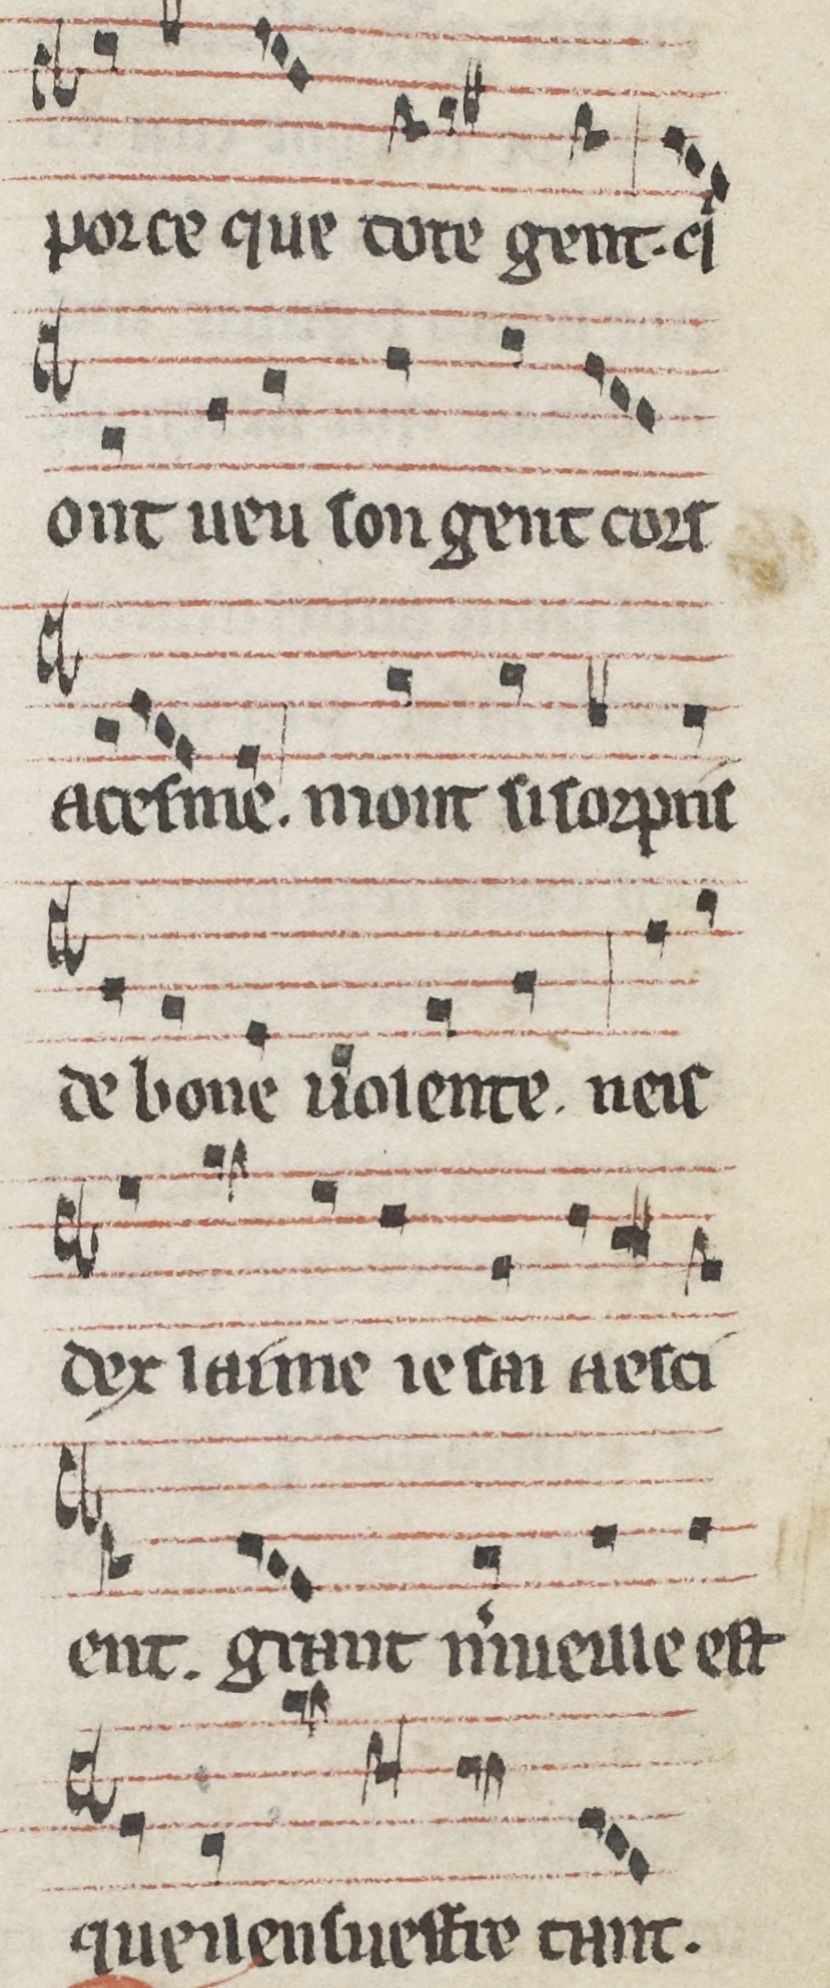 por ce que tote gent. qi
ont ueu son gent cors
acesme. mont si sorpris
de bone uolente. neis
dex laime ie sai a esci
ent. grant merueille est
que uen sueffre tant.